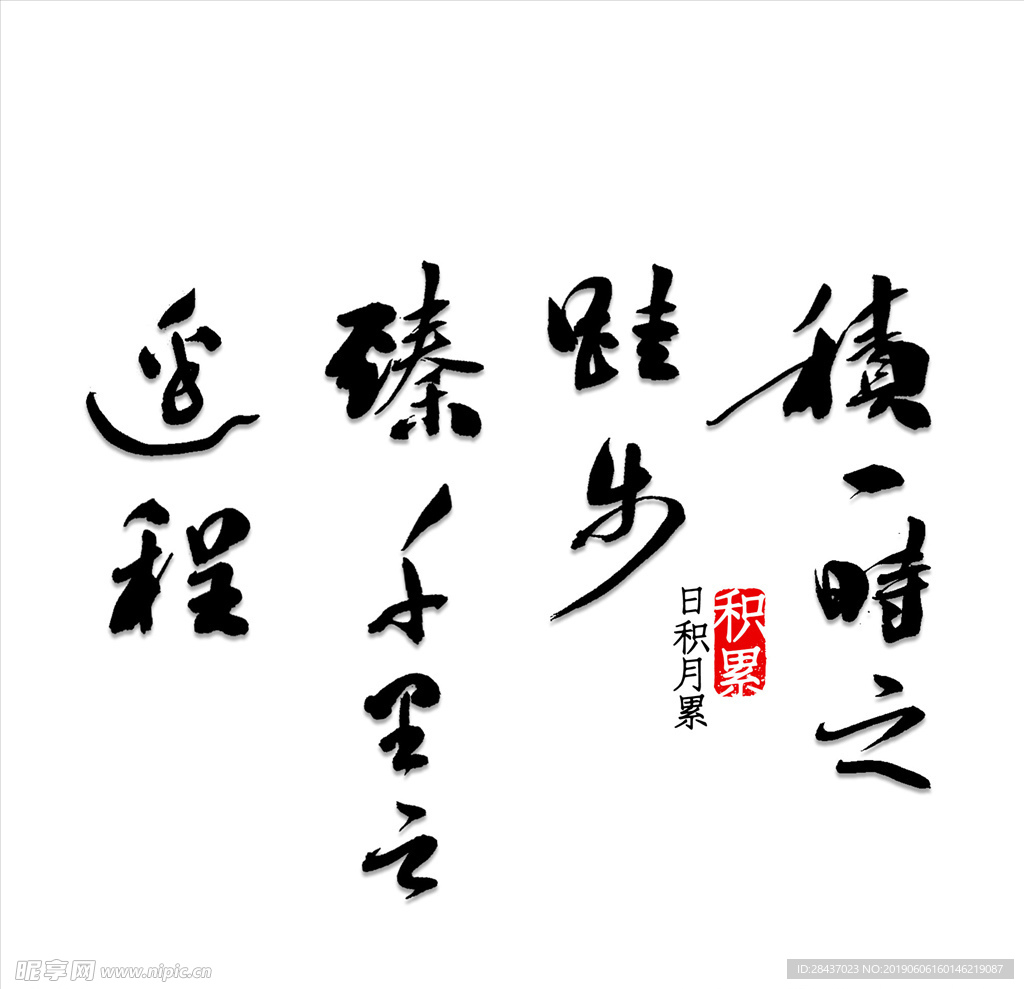 積一時之
跬步
臻千里之
遥程
积累
日积月累
昵享网 www.nipic.cn
ID:28437023 NO:20190606160146219087